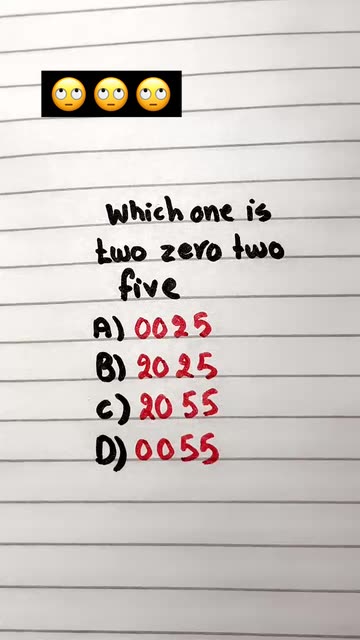 Which one is
two zero two
five
A) 0025
B) 2025
C) 2055
D) 0055